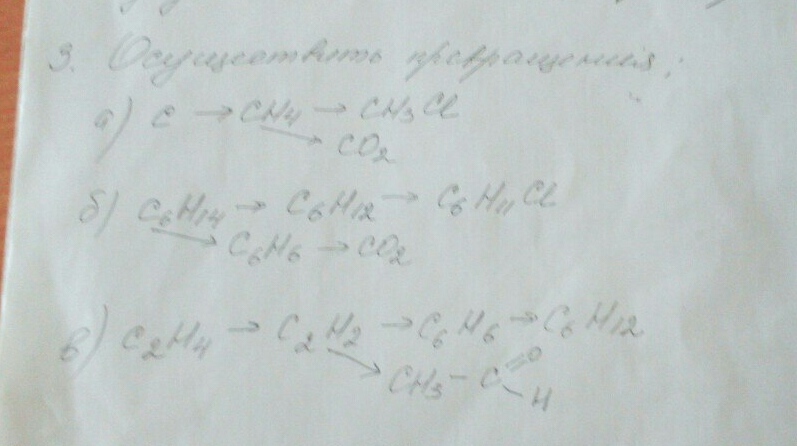 3. Осуществить превращения:
а) C → CH₄ → CH₃Cl
→ CO₂
б) C₆H₁₄ → C₆H₁₂ → C₆H₁₁Cl
→ C₆H₆ → CO₂
в) C₂H₄ → C₂H₂ → C₆H₆ → C₆H₁₂
→ CH₃-C=O
-H